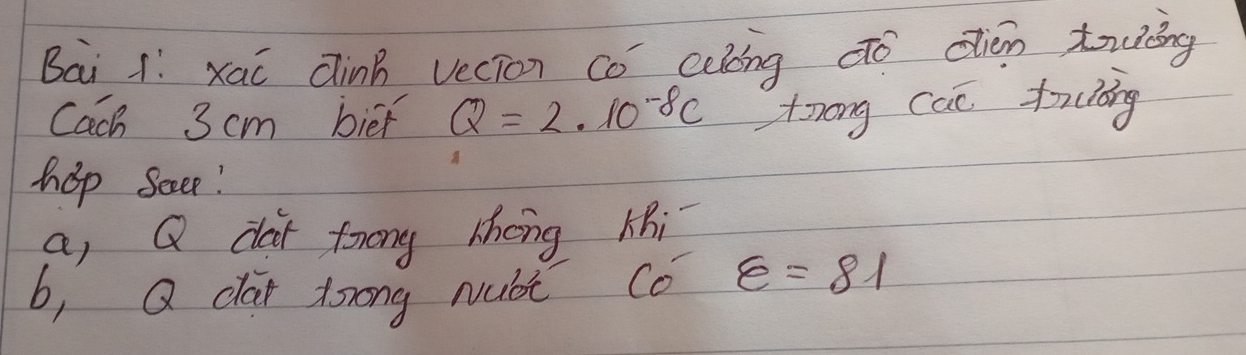 Bài 1: xác định vector có cường độ điện trường
Cách 3cm biết Q = 2.10⁻⁸C trong các trường
hợp sau:
a, Q đặt trong không khí
b, Q đặt trong nước có ε = 81